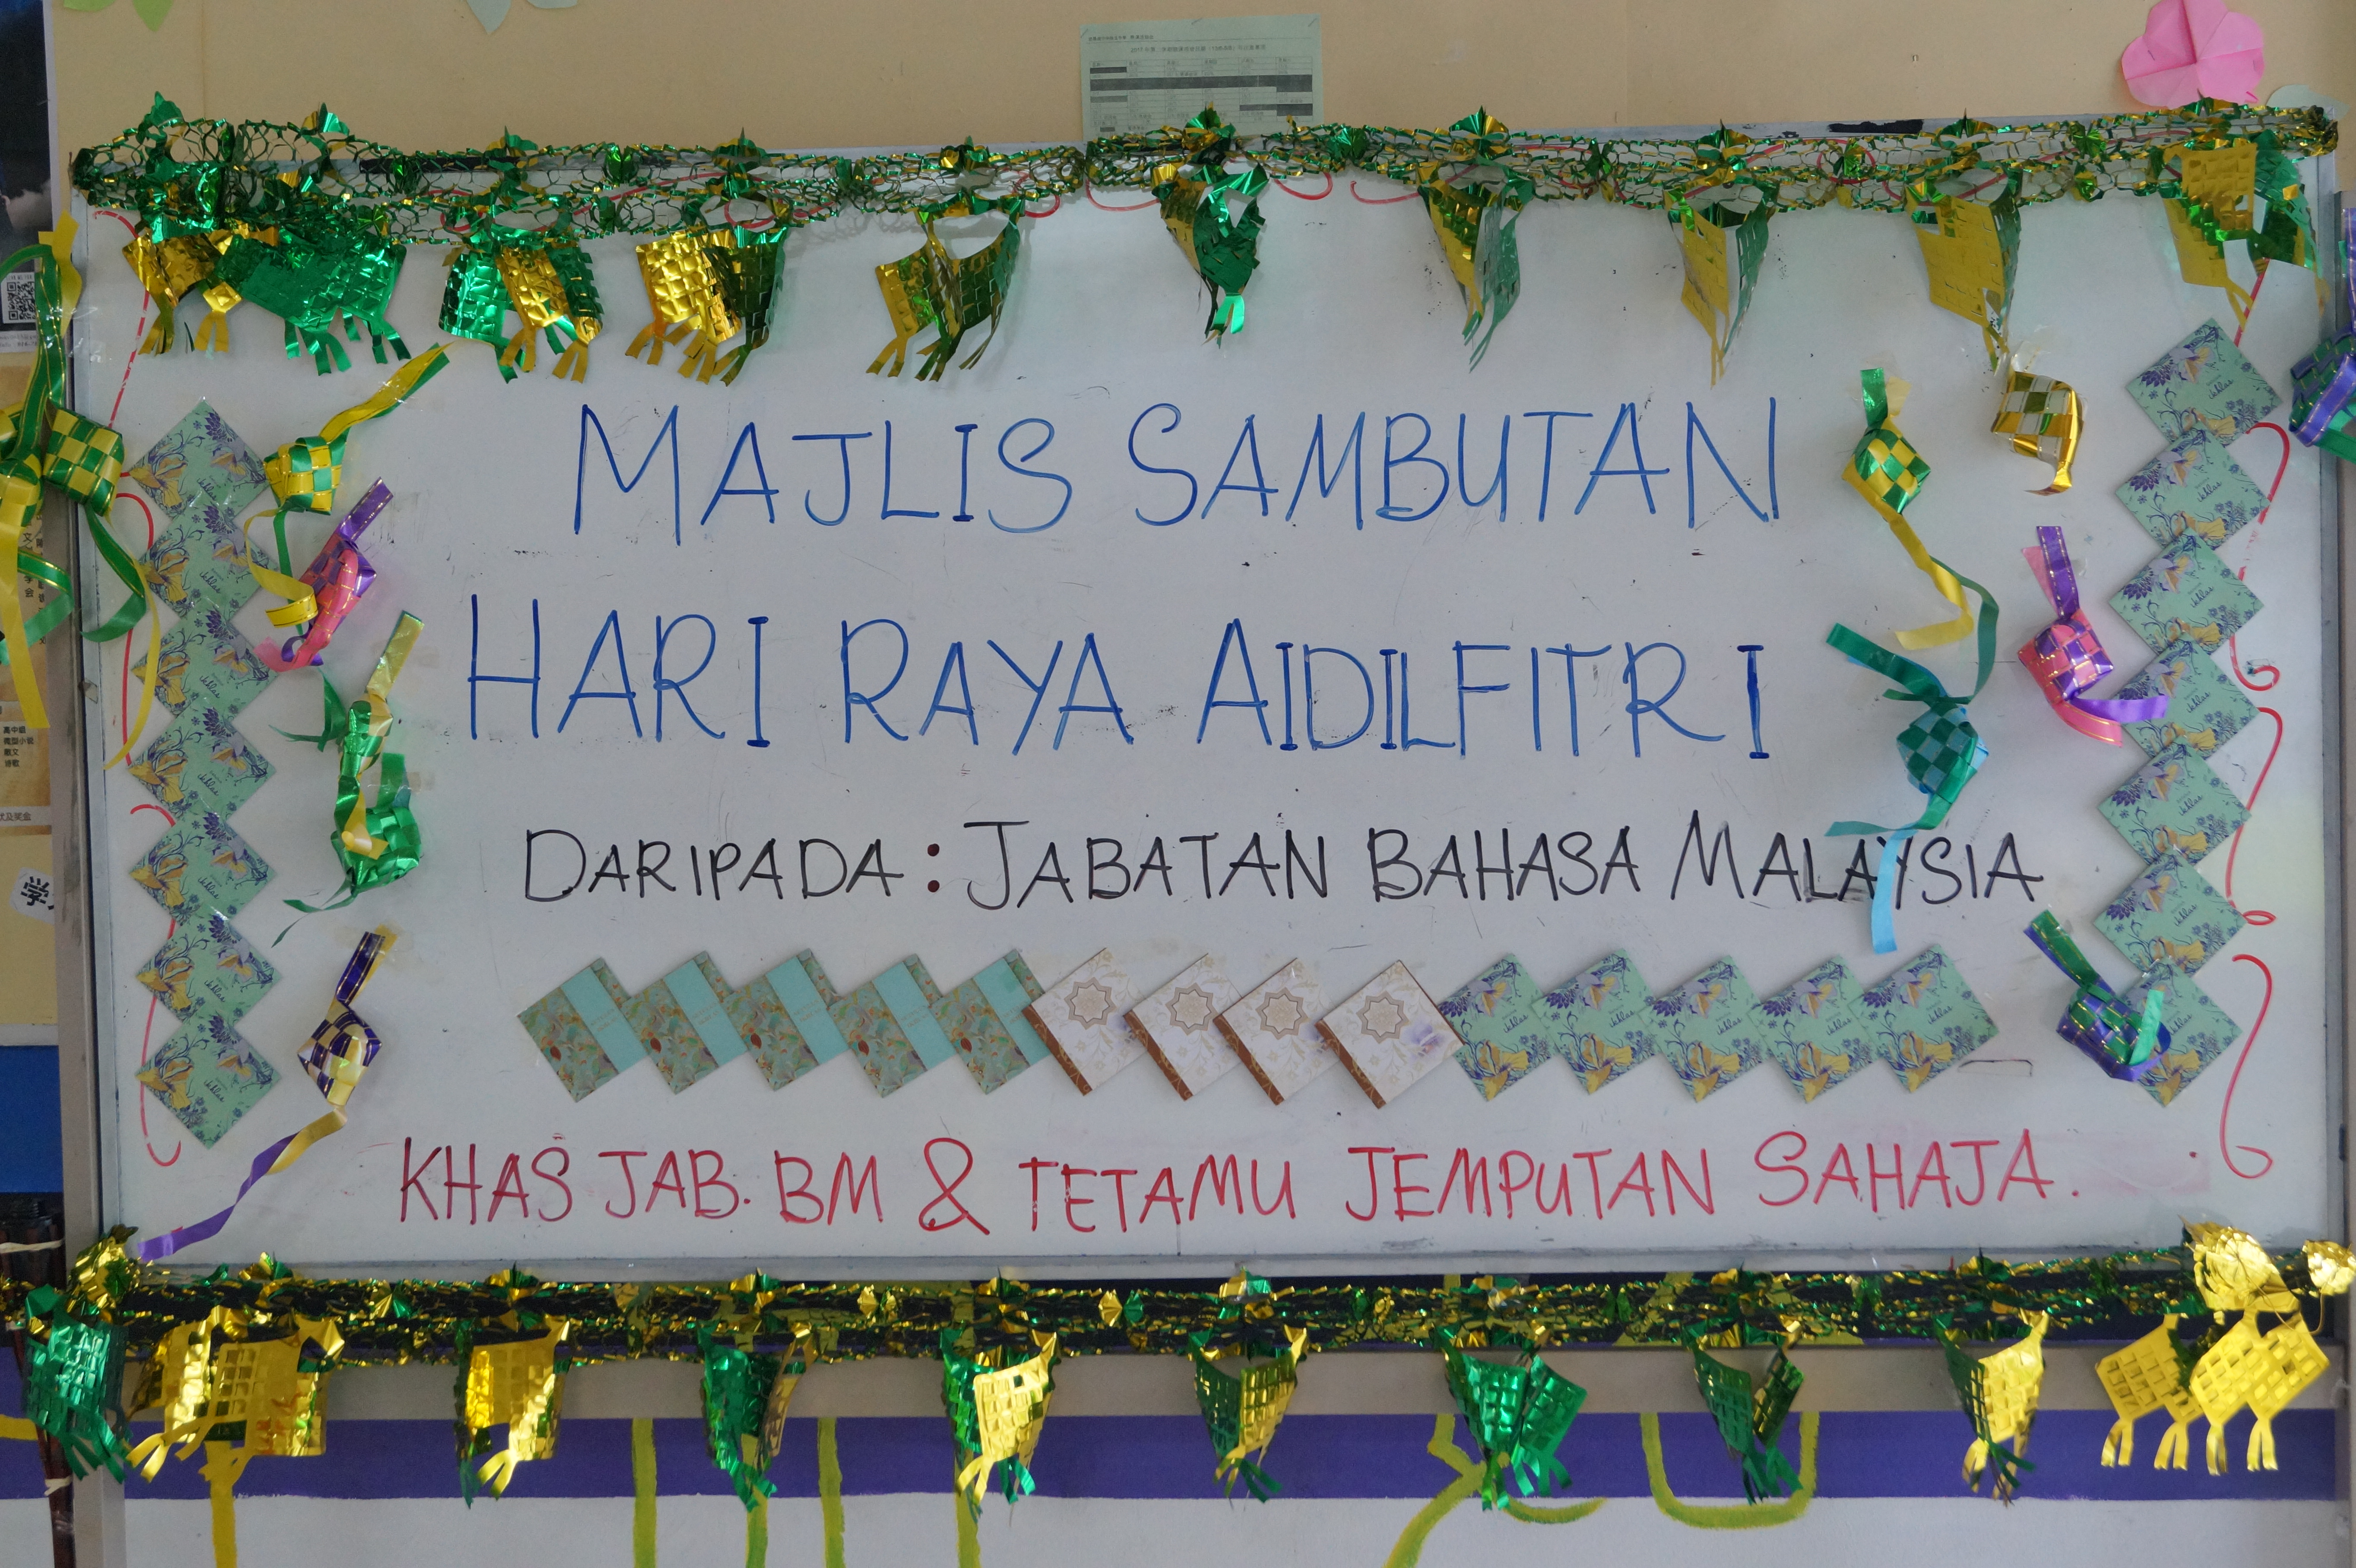 MAJLIS SAMBUTAN
HARI RAYA AIDILFITRI
DARIPADA: JABATAN BAHASA MALAYSIA
KHAS JAB. BM & TETAMU JEMPUTAN SAHAJA.
高中组
微型小说
散文
诗歌
学